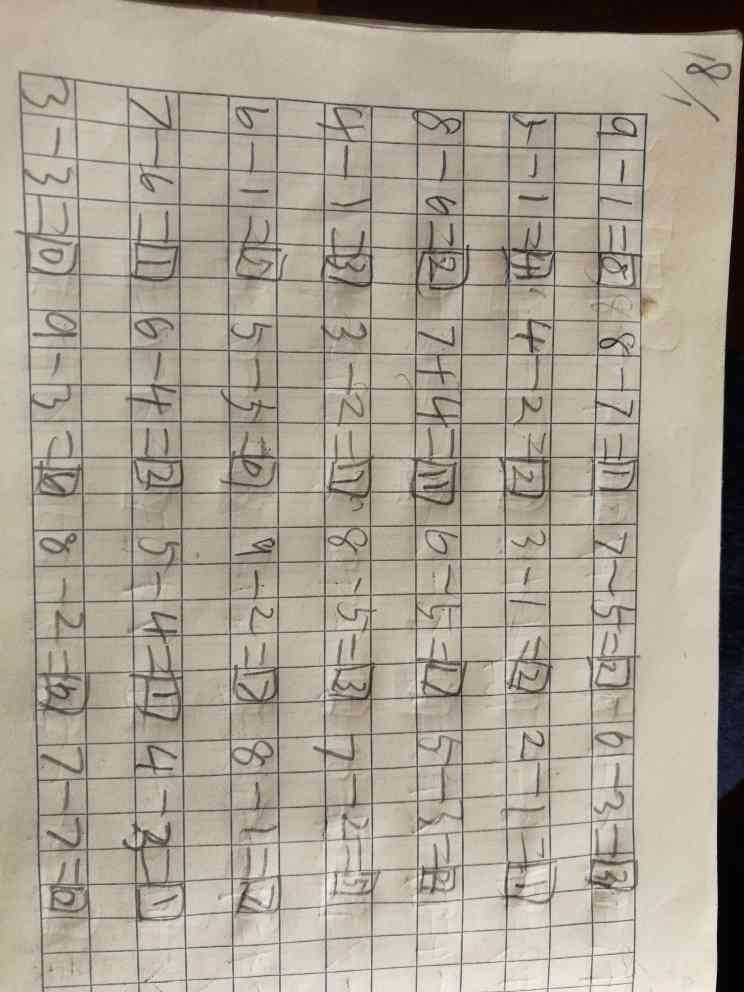 18/1
9-1=8 8-7=1 7-5=2 6-3=3
5-1=4 4-2=2 3-1=2 2-1=1
8-6=2 7+4=11 6-5=1 5-3=2
4-1=3 3-2=1 8-5=3 7-2=5
6-1=5 5-5=0 9-2=7 8-1=7
7-6=1 6-4=2 5-4=1 4-3=1
3-3=0 9-3=6 8-2=6 7-7=0